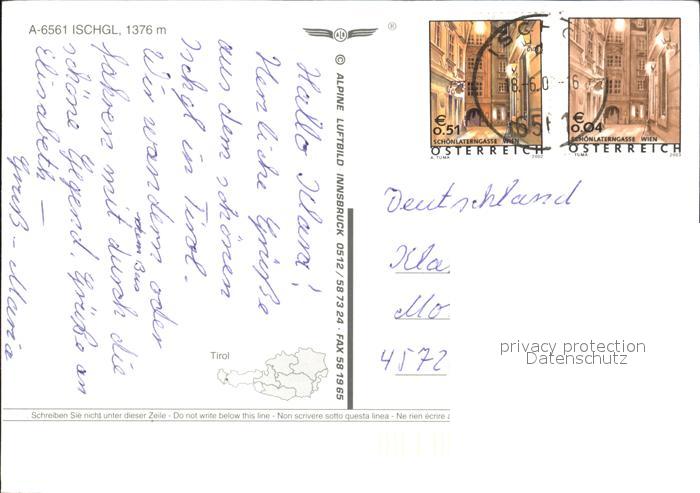 A-6561 ISCHGL, 1376 m
®
Hallo Klara!
Herzliche Grüße
aus dem schönen
Ischgl in Tirol.
Wir wandern oder
fahren mit dem Bus durch die
schöne Gegend. Grüße an
Elisabeth –
Gruß – Maria
© ALPINE LUFTBILD INNSBRUCK 0512/587324 · FAX 581965
Tirol
Schreiben Sie nicht unter dieser Zeile - Do not write below this line - Non scrivere sotto questa linea - Ne rien écrire
€
0.51
SCHÖNLATERNGASSE WIEN
ÖSTERREICH
A. TUMA 2002
€
0.04
SCHÖNLATERNGASSE WIEN
ÖSTERREICH
A. TUMA 2003
Deutschland
Kla
Mo
4572
privacy protection
Datenschutz